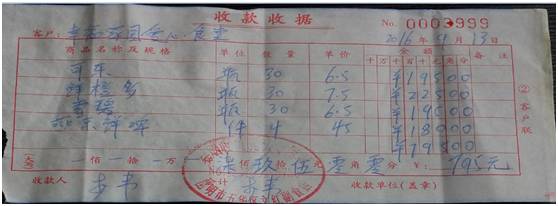 收款收据
No. 0003999
客户: 食堂
2016年 01月 13日
商品名称及规格 单位 数量 单价 金额 备注
十万千百十元角分
可乐 瓶 30 6.5 ¥19500
鲜橙多 瓶 30 7.5 ¥22500
雪碧 瓶 30 6.5 ¥19500
件 4 45 ¥18000
¥79500
佰 拾 万 仟 柒佰玖拾伍元零角零分 ¥: 795元
收款人
收款单位(盖章)
②客户联